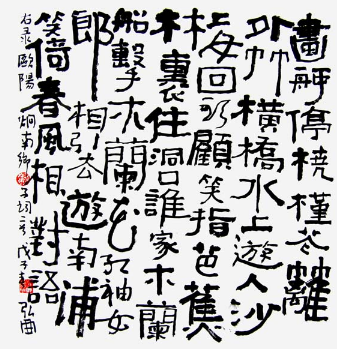 畫舸停橈槿花籬
外竹橫橋水上遊人沙
上女回顧笑指芭蕉
林裏住洞口誰家木蘭
船繫木蘭花紅袖女
郎相引去遊南浦
笑倚春風相對語
右录歐陽炯南鄉子詞二首戊子